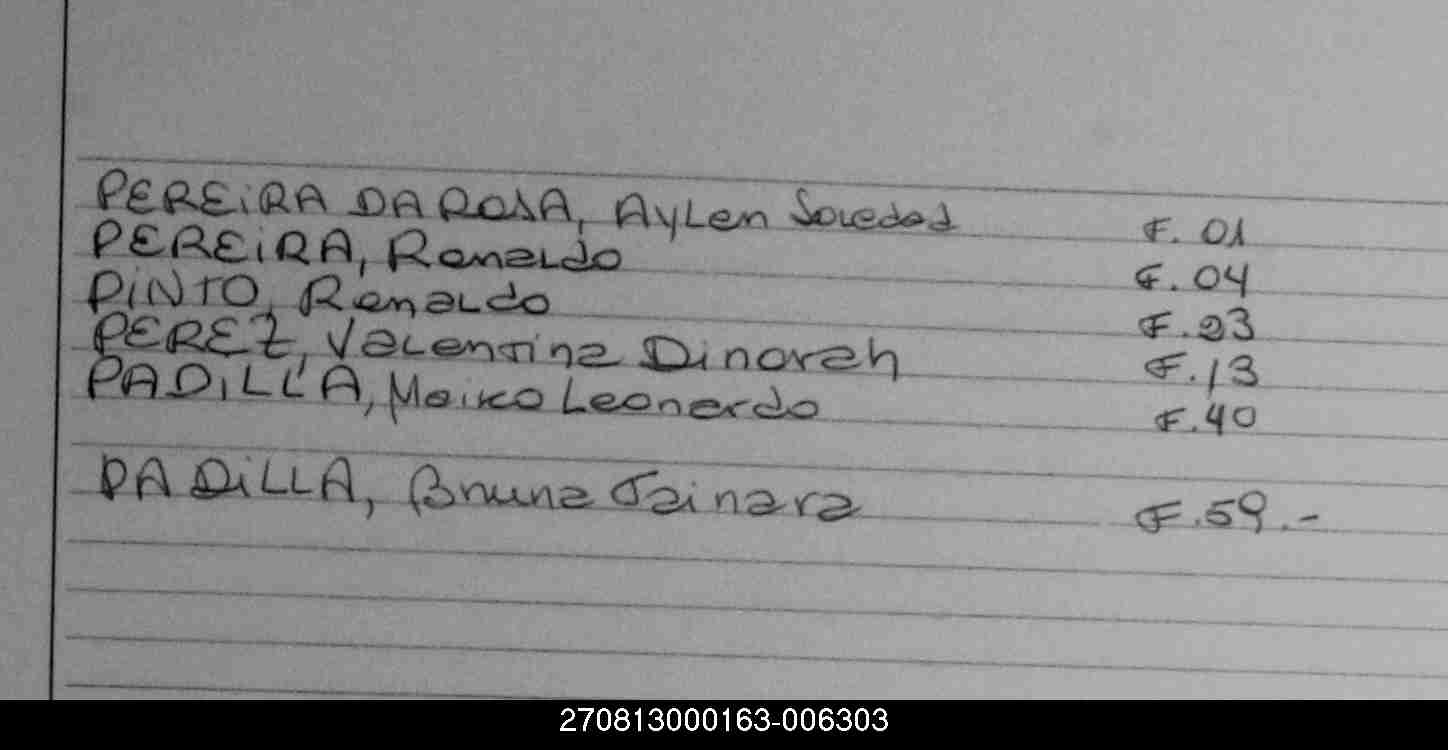 PEREiRA DA ROSA, Aylen Soledad F. 01
PEREiRA, Ronaldo F. 04
PiNTO, Ronaldo F. 03
PEREZ, Valentina Dinorah F. 13
PADiLLA, Maico Leonardo F. 40
PADiLLA, Bruna Tainara F. 59.-
270813000163-006303